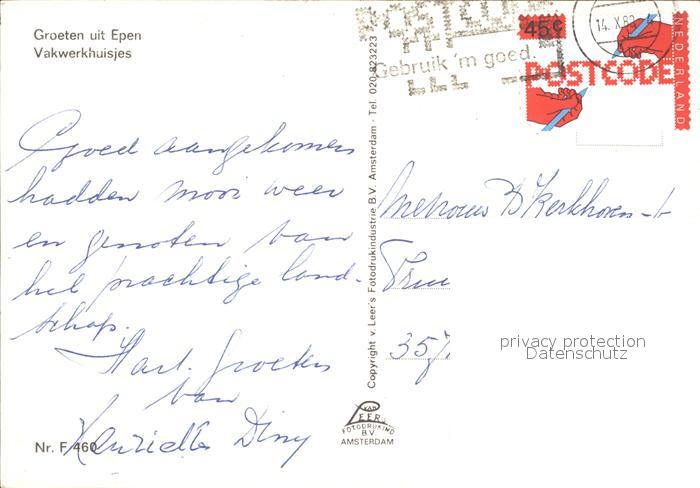 Groeten uit Epen
Vakwerkhuisjes
Goed aangekomen
hadden mooi weer
en genoten van
het prachtige land-
schap.
Hart. groeten
van
Henriette Diny
Nr. F 460
Copyright v. Leer's Fotodrukindustrie B.V. Amsterdam - Tel. 020-823223
VAN
LEER's
FOTODRUKIND
B.V.
AMSTERDAM
Gebruik 'm goed.
14.X.80
45c
POSTCODE
NEDERLAND
Mevrouw B Kerkhoven
35
privacy protection
Datenschutz